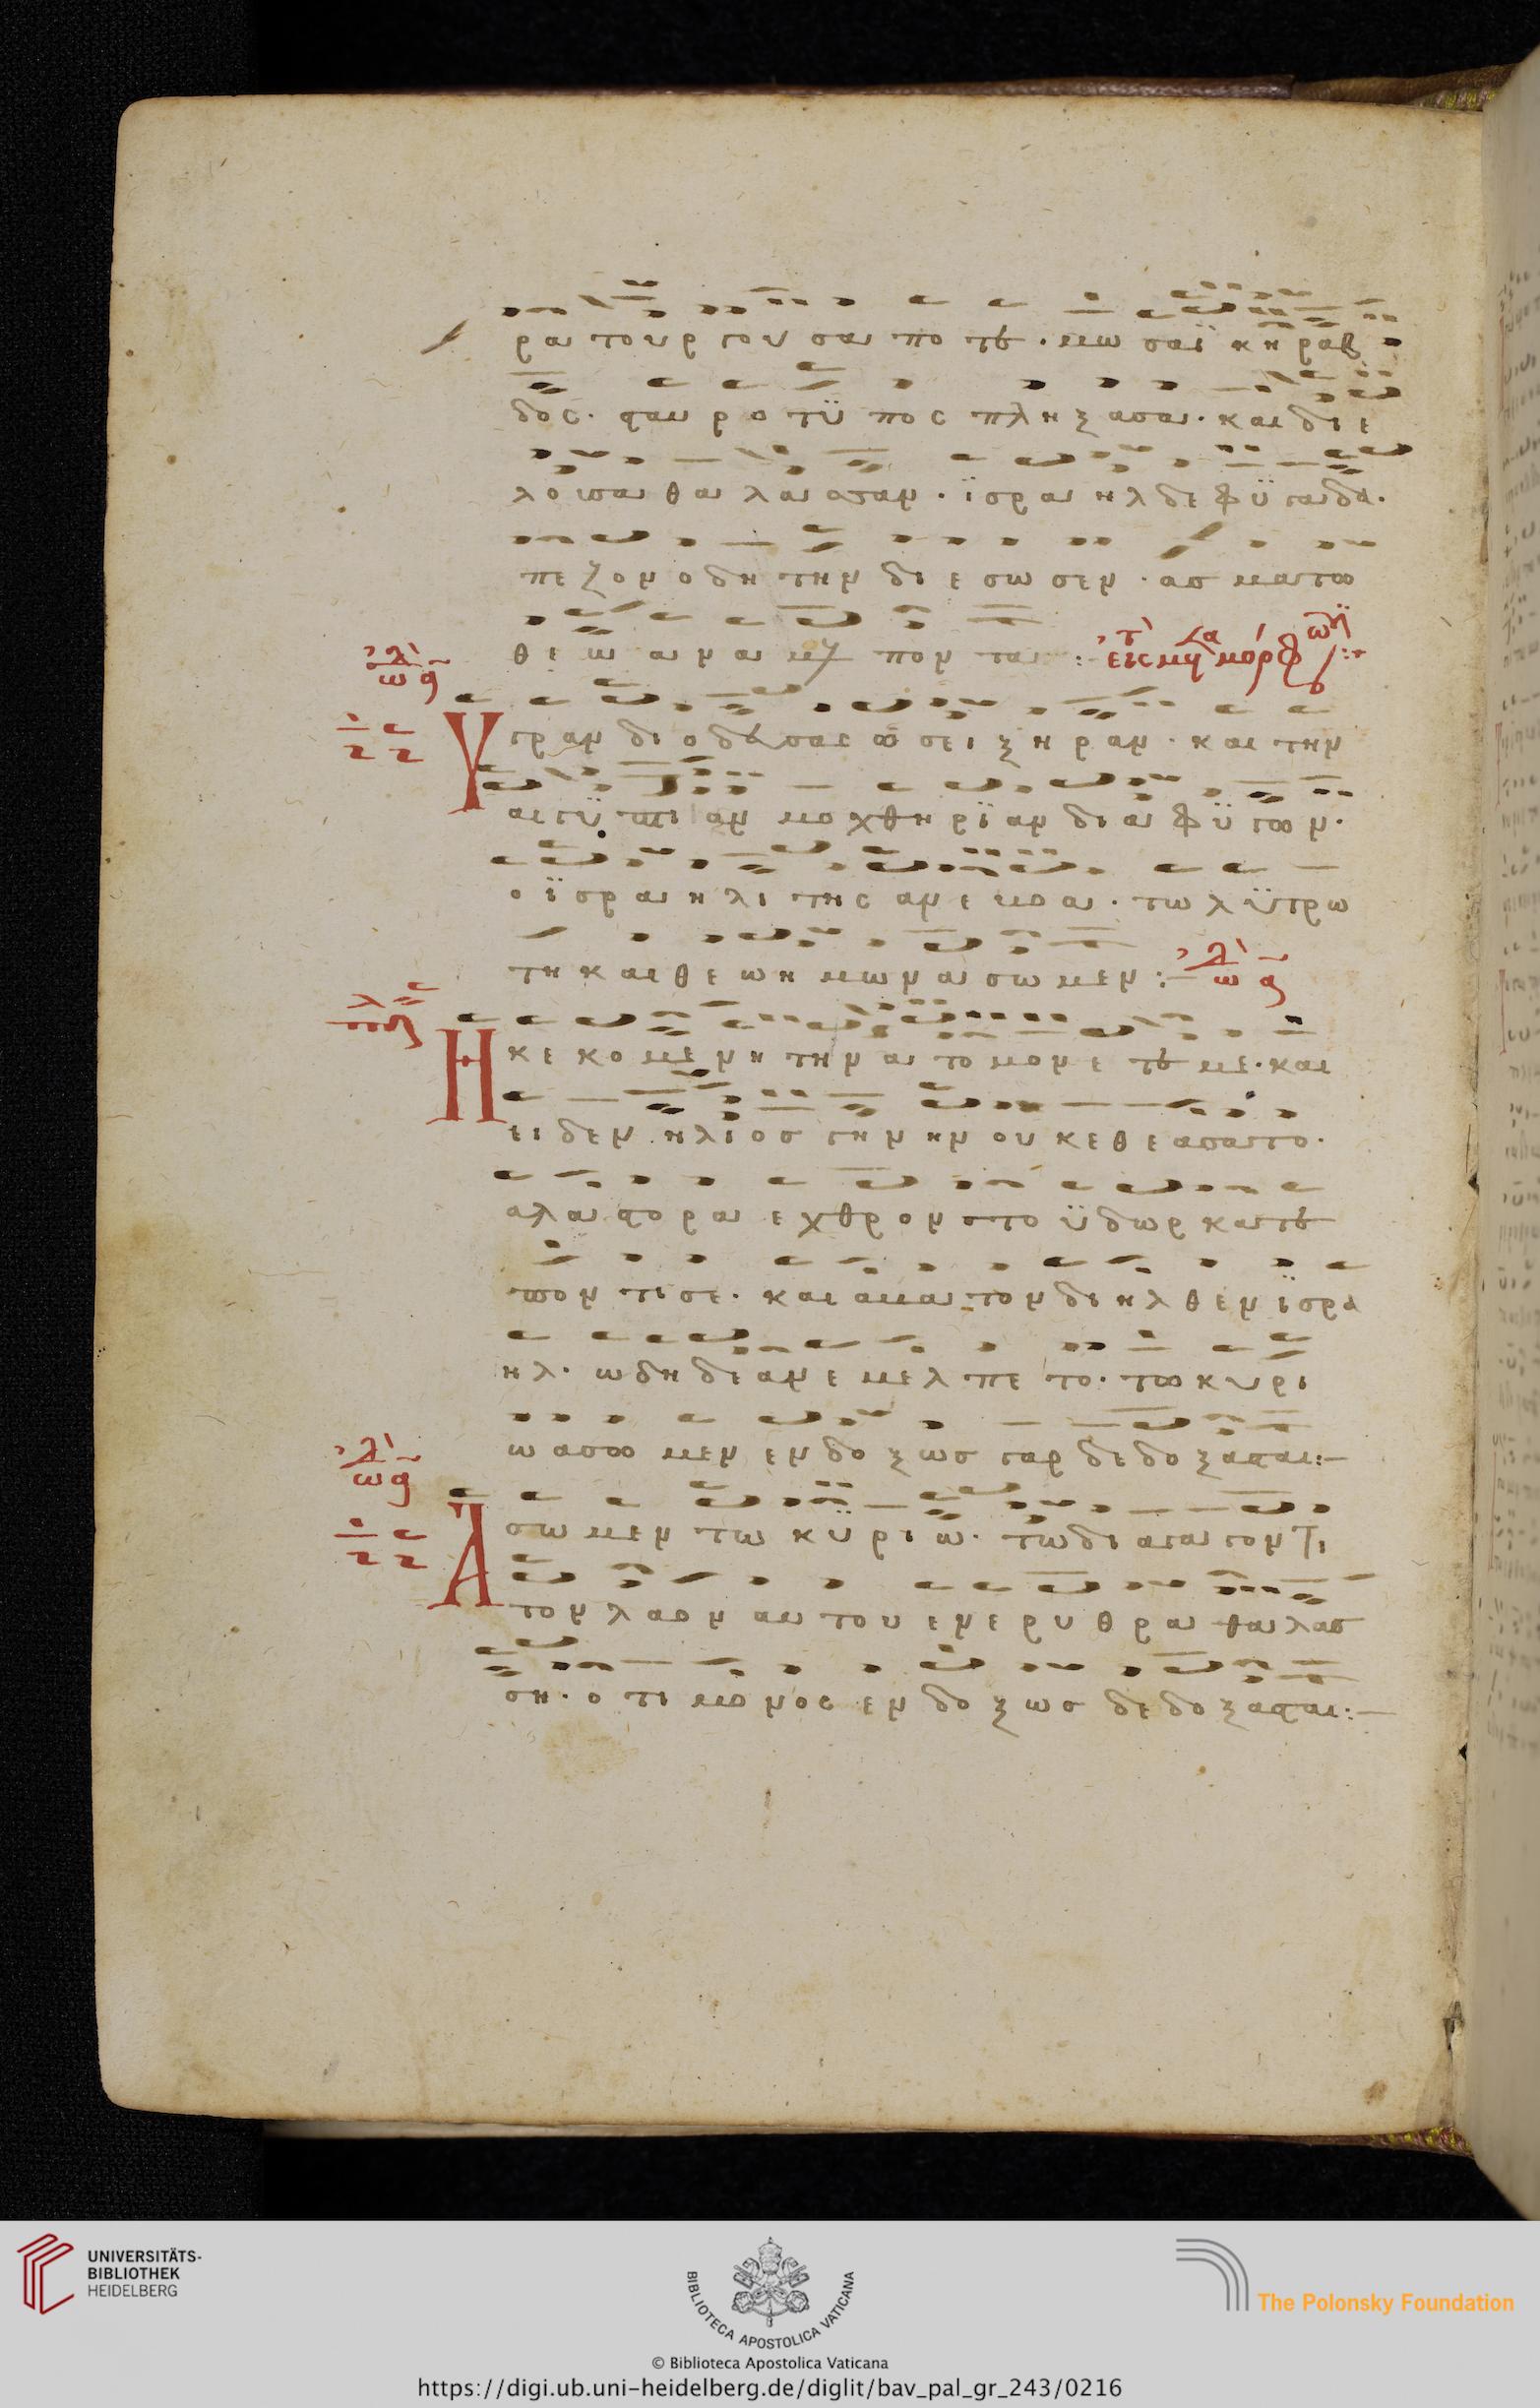 ρα τουρ γου σα πο τȣ · μω σαϊ κη ραβ
δος · σταυ ρο τϋ πος πλη ξ ασα · και δι ε
λου σα θα λα σσαν · ϊσρα ηλ δε φϋ γα δα ·
πεζον ο δη την δι ε σω σεν · ασ ματω
θε ω α να μελ πον τα :
Υ γραν δι ο δευσας ω σει ξη ραν · και την
αιγϋ πτι αν μο χθη ρϊ αν δι α φϋ γων ·
ο ϊσρα η λι της αν ε βοα · τω λϋτρω
τη και θε ω η μων α σω μεν :- ωδ
Η κε κο με νη την α το μον ε τε με · και
ει δεν ηλιος γην ην ου κε θε ασατο ·
αλα στο ρα εχθρον το ϋδωρ κατε
πον τισε · και αβατον δι ηλ θεν ϊσρα
ηλ · ωδη δε αν ε μελ πε το · τω κυρι
ω ασω μεν εν δο ξως γαρ δε δο ξασται :-
Α σω μεν τω κϋ ρι ω · τω δι αγα γον τι
τον λαον αυ του εν ερυ θρα θα λασ
ση · ο τι μο νος εν δο ξως δε δο ξασται :-
UNIVERSITÄTS-
BIBLIOTHEK
HEIDELBERG
BIBLIOTECA APOSTOLICA VATICANA
The Polonsky Foundation
© Biblioteca Apostolica Vaticana
https://digi.ub.uni-heidelberg.de/diglit/bav_pal_gr_243/0216